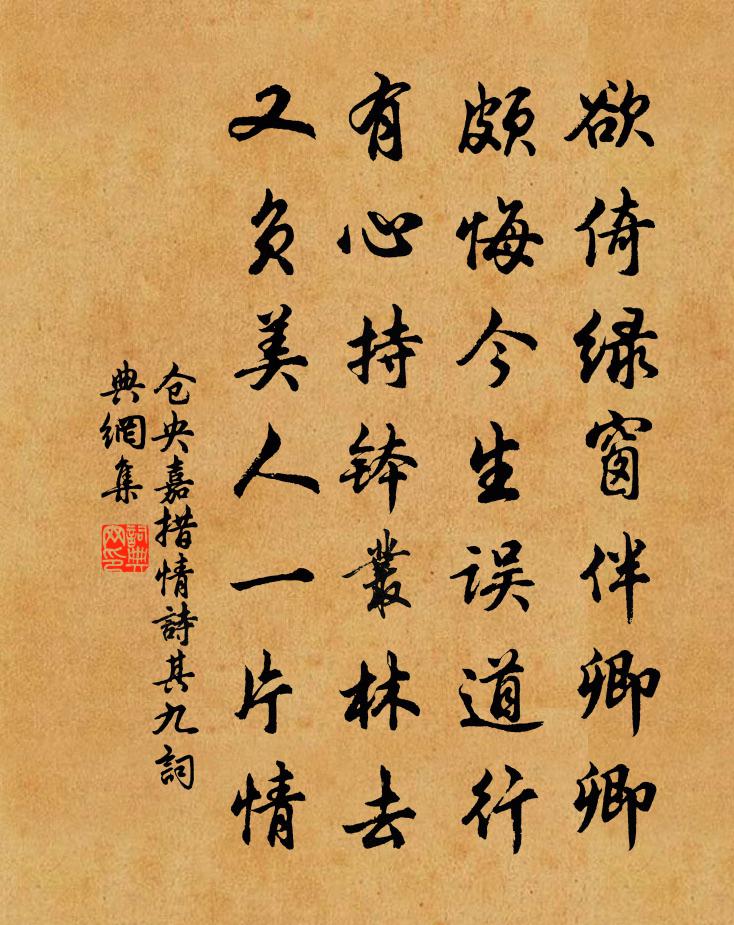 欲倚绿窗伴卿卿
颇悔今生误道行
有心持钵丛林去
又负美人一片情
仓央嘉措情詩其九詞
典網集
詞典
网印